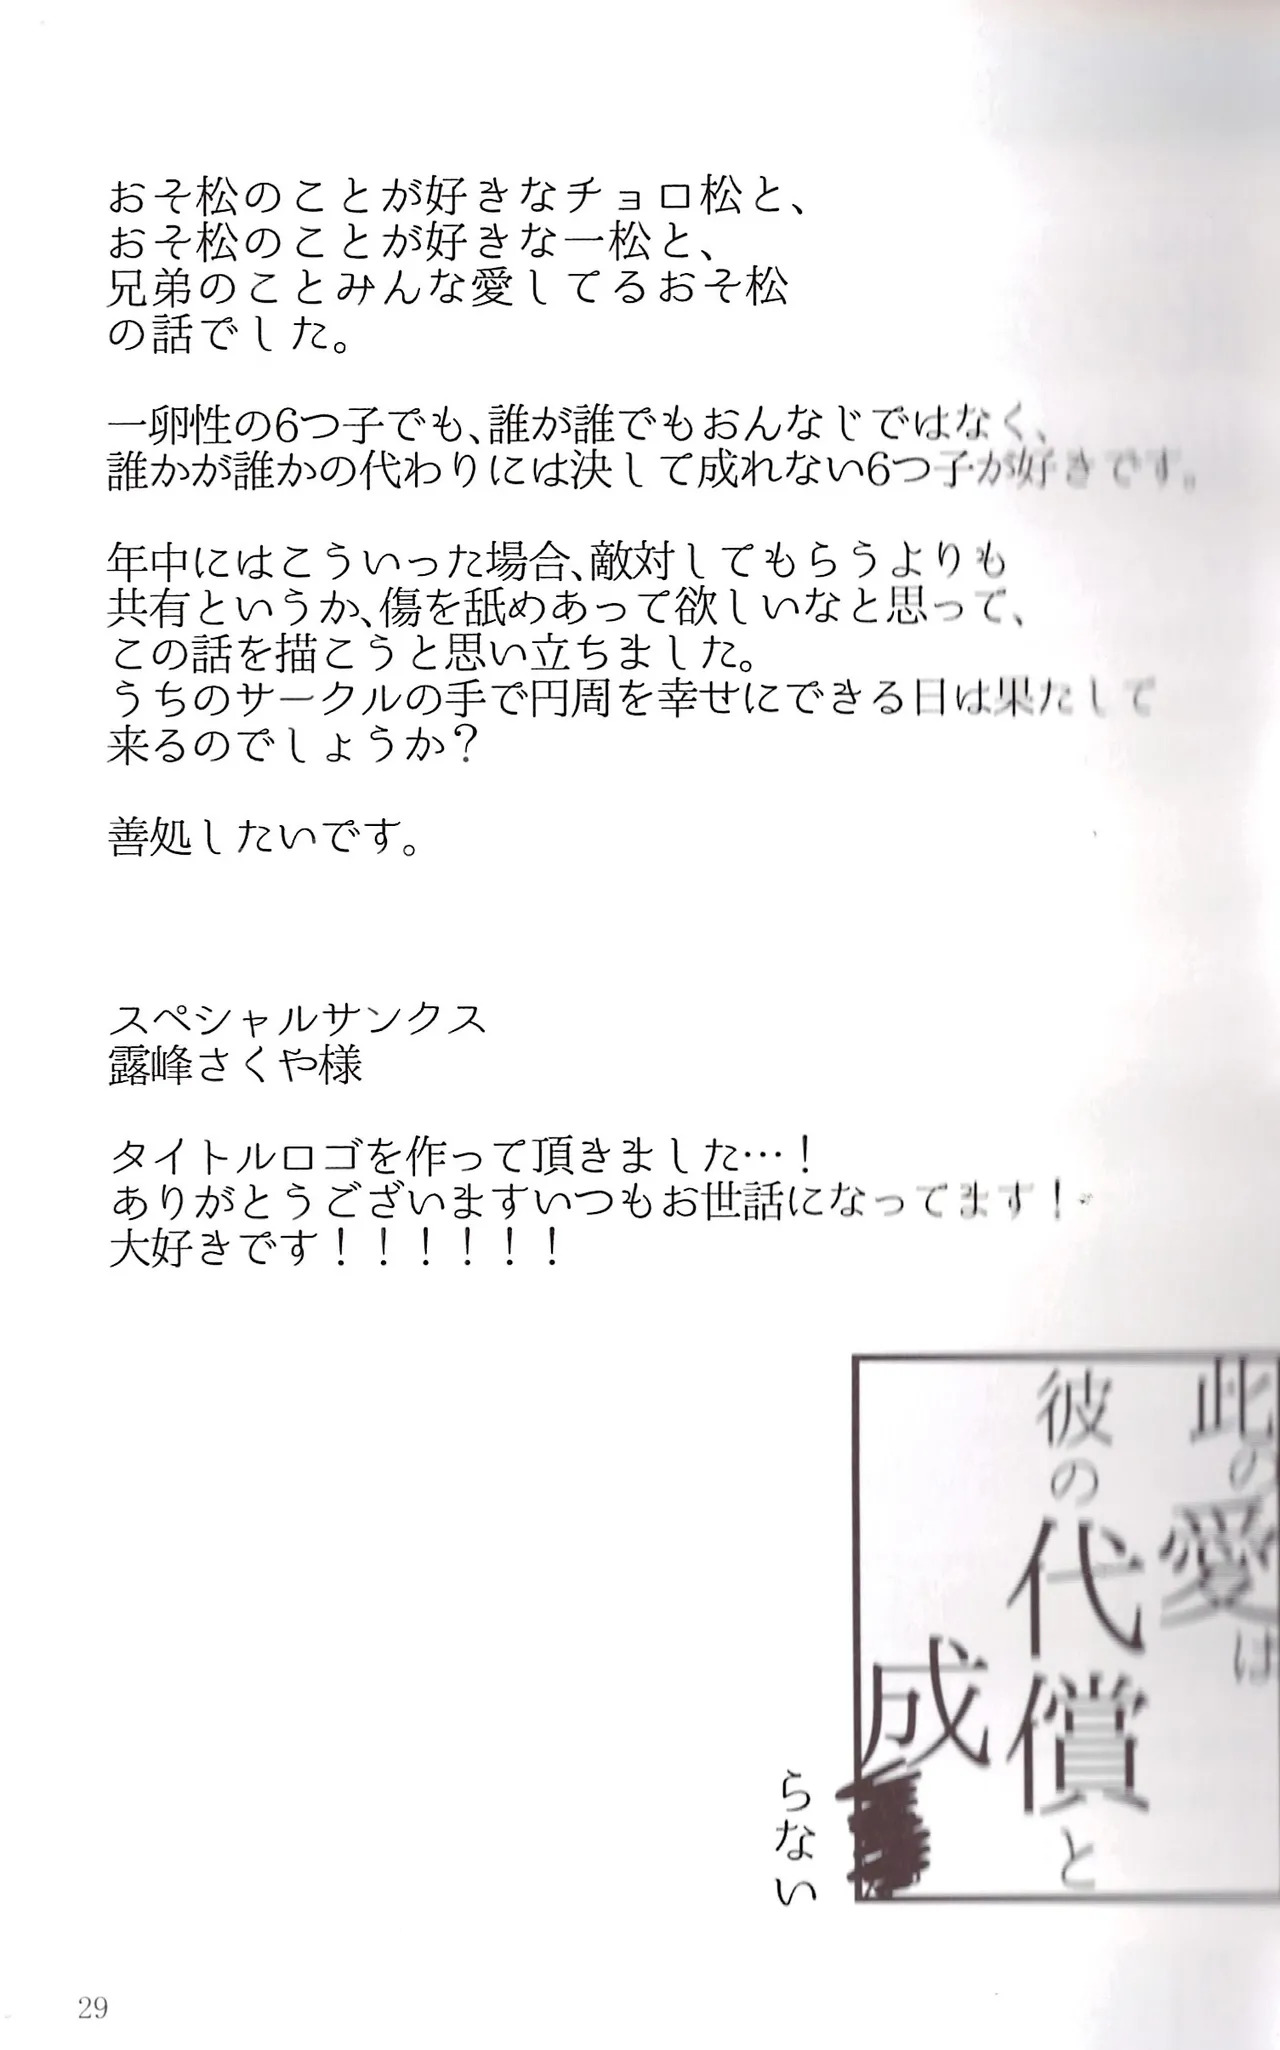 おそ松のことが好きなチョロ松と、
おそ松のことが好きな一松と、
兄弟のことみんな愛してるおそ松
の話でした。
一卵性の6つ子でも、誰が誰でもおんなじではなく、
誰かが誰かの代わりには決して成れない6つ子が好きです。
年中にはこういった場合、敵対してもらうよりも
共有というか、傷を舐めあって欲しいなと思って、
この話を描こうと思い立ちました。
うちのサークルの手で円周を幸せにできる日は果たして
来るのでしょうか？
善処したいです。
スペシャルサンクス
露峰さくや様
タイトルロゴを作って頂きました…！
ありがとうございますいつもお世話になってます！
大好きです！！！！！！
此の愛は
彼の代償と
成
らない
29